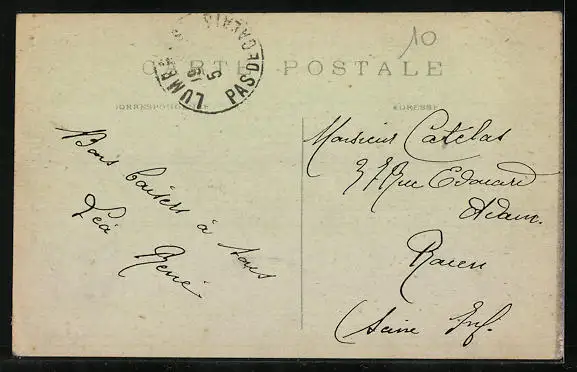 10
CARTE POSTALE
CORRESPONDANCE
ADRESSE
LUMB
PAS DE CALAIS
5
Bons baisers à tous
Léa René
Monsieur Catelas
37 Rue Edouard
Adam
Rouen
(Seine Inf.